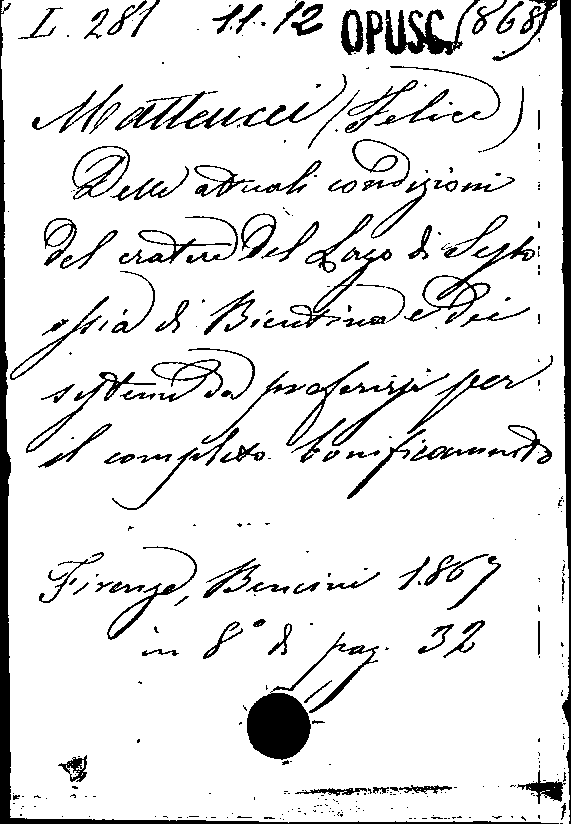 I. 281 11.12 OPUSC. (868)
Matteucci (Felice)
Delle attuali condizioni
del cratere del Lago di Sesto
ossia di Bientina e dei
systemi da preferirsi per
il completo bonificamento
Firenze, Bencini 1867
in 8° di pag. 32